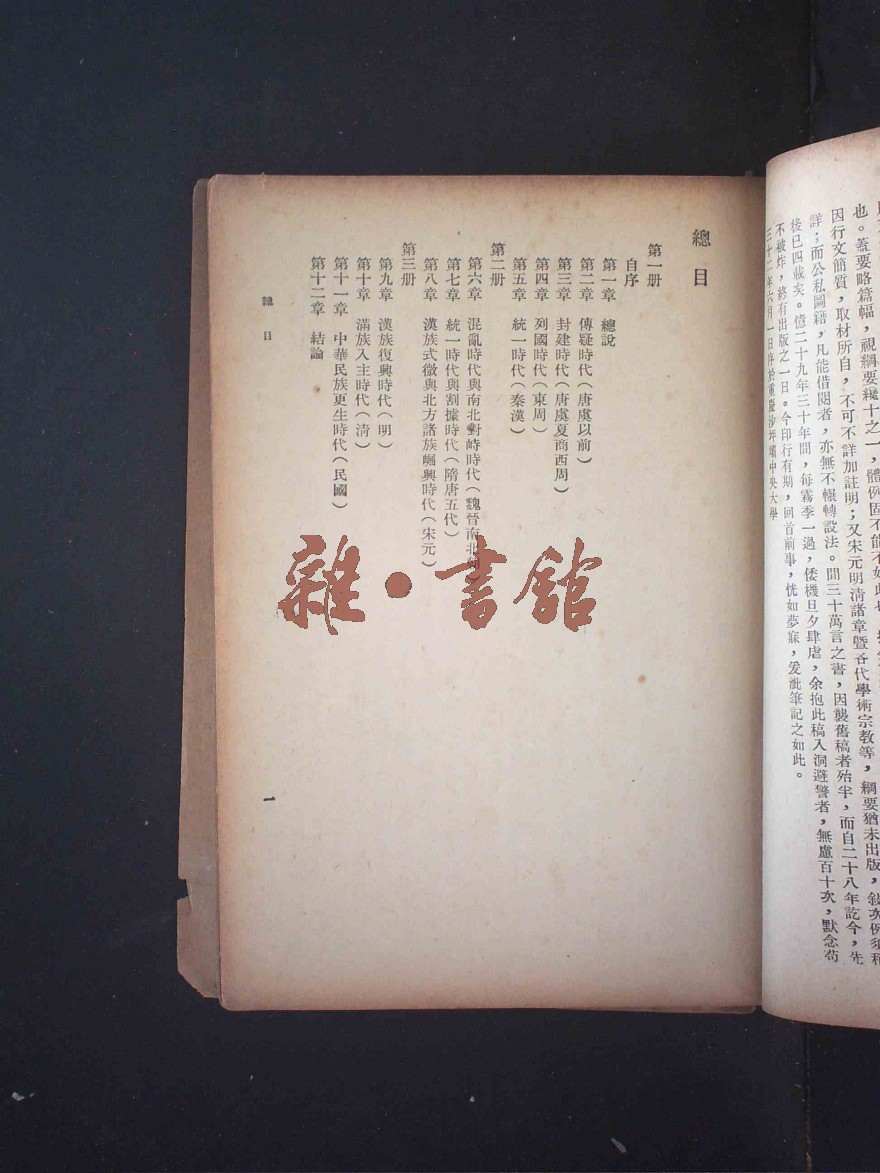 也。蓋要略篇幅，視綱要纔十之一，體例固不能不如此也
因行文簡質，取材所自，不可不詳加註明；又宋元明清諸章暨各代學術宗教等，綱要猶未出版，敍次例須稍
詳；而公私圖籍，凡能借閱者，亦無不輾轉設法。間三十萬言之書，因襲舊稿者殆半，而自二十八年訖今，先
後已四載矣。憶二十九年三十年間，每霧季一過，倭機旦夕肆虐，余抱此稿入洞避警者，無慮百十次，默念苟
不被炸，終有出版之一日。今印行有期，回首前事，恍如夢寐，爰泚筆記之如此。
三十二年六月一日序於重慶沙坪壩中央大學
總目
第一册
自序
第一章 總說
第二章 傳疑時代（唐虞以前）
第三章 封建時代（唐虞夏商西周）
第四章 列國時代（東周）
第五章 統一時代（秦漢）
第二册
第六章 混亂時代與南北對峙時代（魏晉南北朝）
第七章 統一時代與割據時代（隋唐五代）
第八章 漢族式微與北方諸族崛興時代（宋元）
第三册
第九章 漢族復興時代（明）
第十章 滿族入主時代（清）
第十一章 中華民族更生時代（民國）
第十二章 結論
總目
一
雜·書館